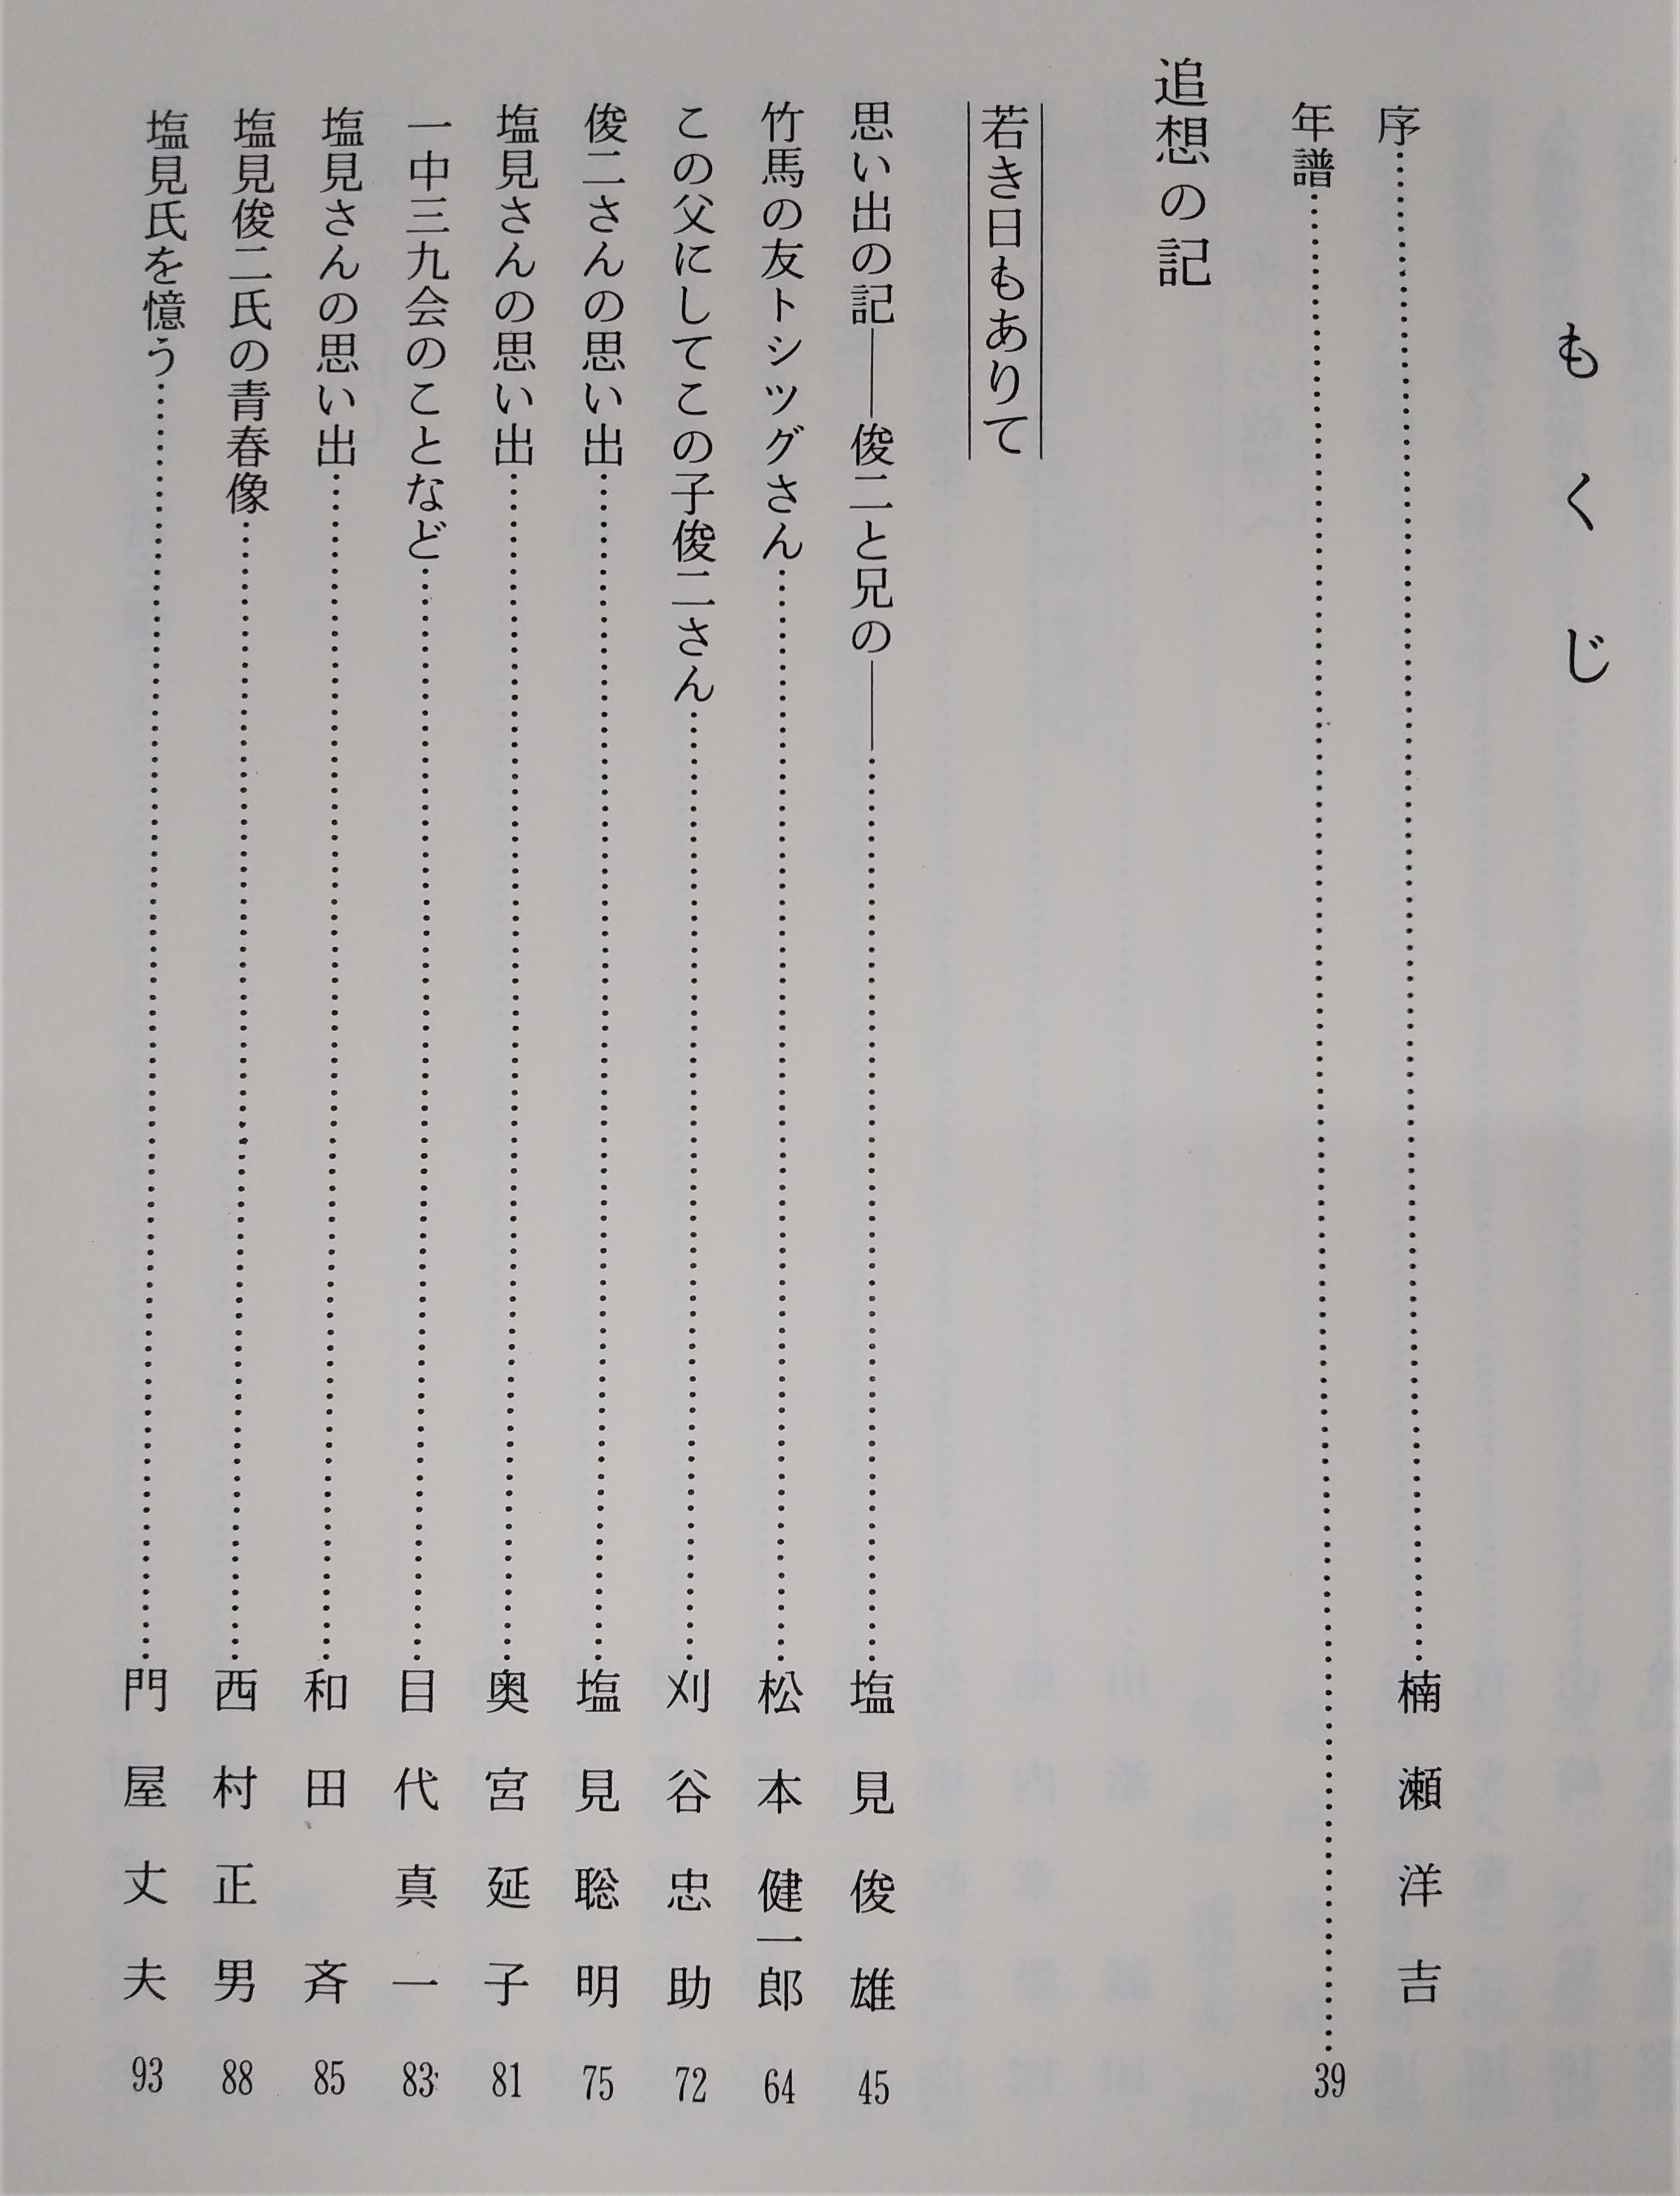 もくじ
序……楠瀬洋吉
年譜……39
追想の記
若き日もありて
思い出の記――俊二と兄の――……塩見俊雄 45
竹馬の友トシツグさん……松本健一郎 64
この父にしてこの子俊二さん……刈谷忠助 72
俊二さんの思い出……塩見聡明 75
塩見さんの思い出……奥宮延子 81
一中三九会のことなど……目代真一 83
塩見さんの思い出……和田斉 85
塩見俊二氏の青春像……西村正男 88
塩見氏を憶う……門屋丈夫 93